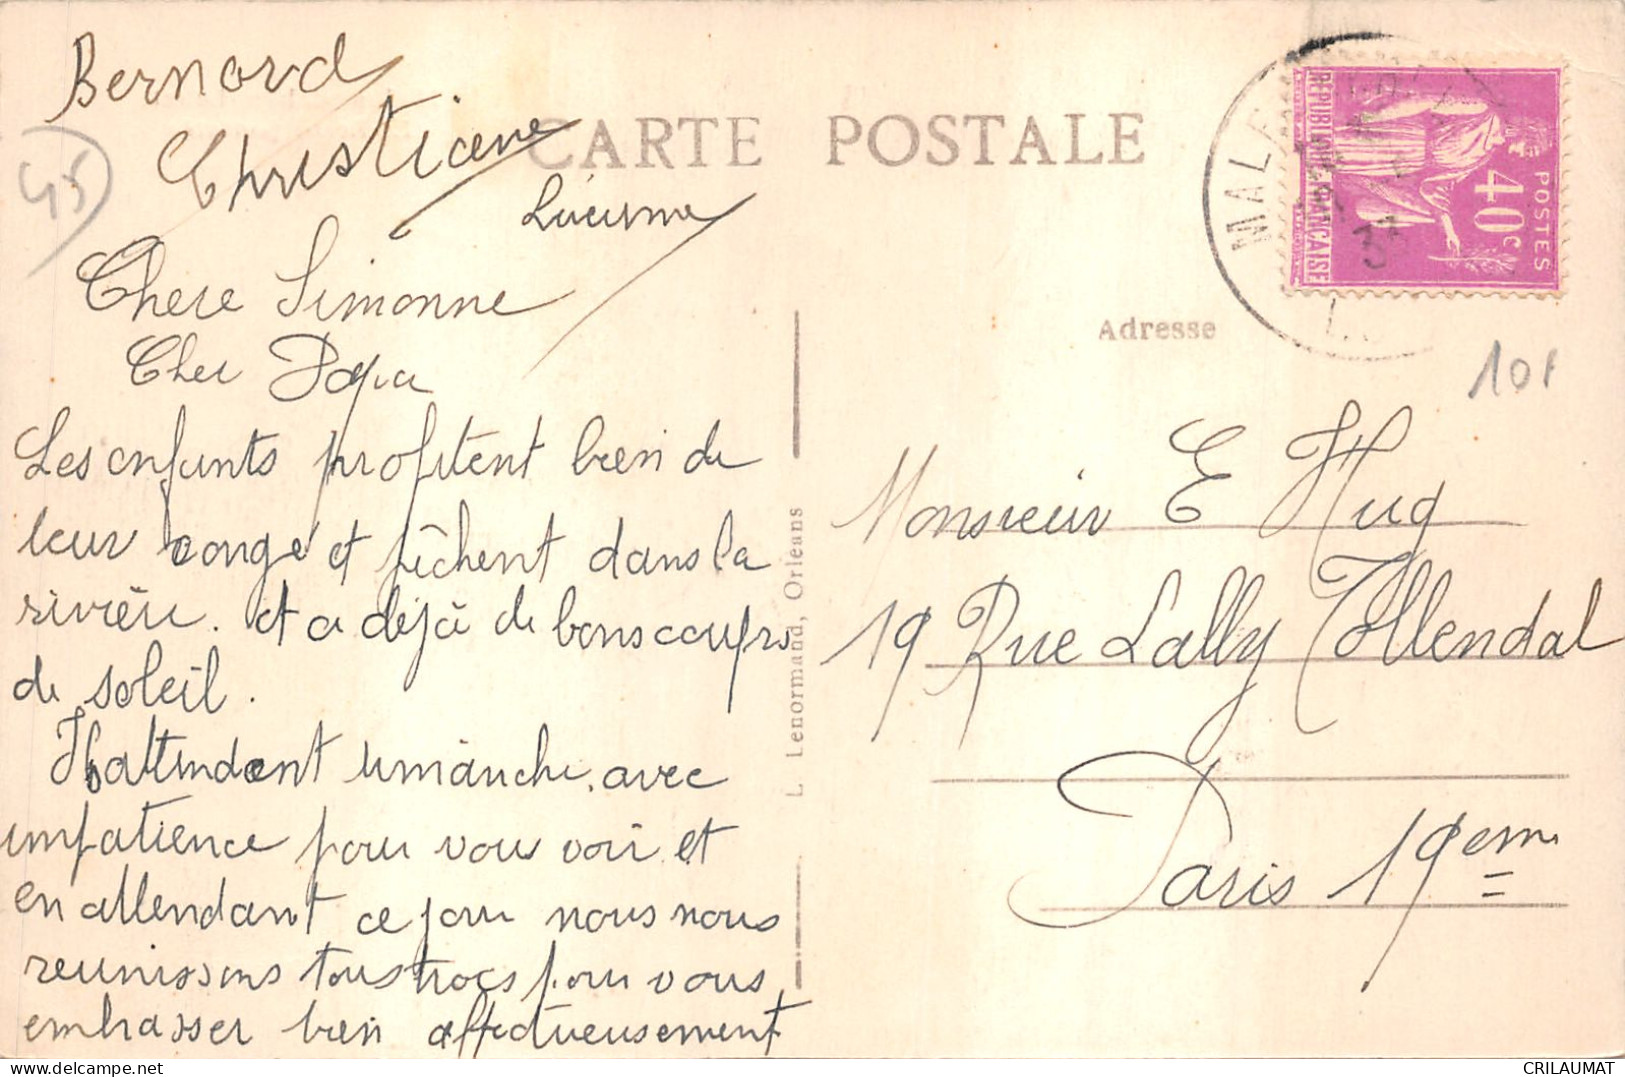 Bernard
Christiane
45
CARTE POSTALE
Lucienne
Chere Simonne
Cher Papa
Les enfants profitent bien de
leur congé et pêchent dans la
rivière. et a déjà de bons coups
de soleil.
Ils attendent dimanche avec
impatience pour vous voir et
en attendant ce jour nous nous
reunissons tous trois pour vous
embrasser bien affectueusement
L. Lenormand, Orléans
RÉPUBLIQUE FRANÇAISE
POSTES
40c
MALE
33
Adresse
10f
Monsieur E Hug
19 Rue Lally Tollendal
Paris 19eme
www.delcampe.net
CRILAUMAT